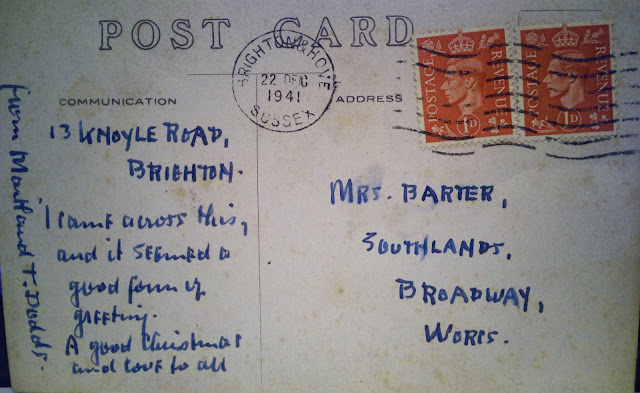 POST CARD
BRIGHTON & HOVE
22 DEC
1941
SUSSEX
POSTAGE REVENUE
1D
POSTAGE REVENUE
1D
COMMUNICATION
ADDRESS
13 KNOYLE ROAD,
BRIGHTON.
I came across this,
and it seemed a
good form of
greeting.
A good Christmas
and love to all
from Maitland T. Dodds.
MRS. BARTER,
SOUTHLANDS,
BROADWAY,
WORCS.